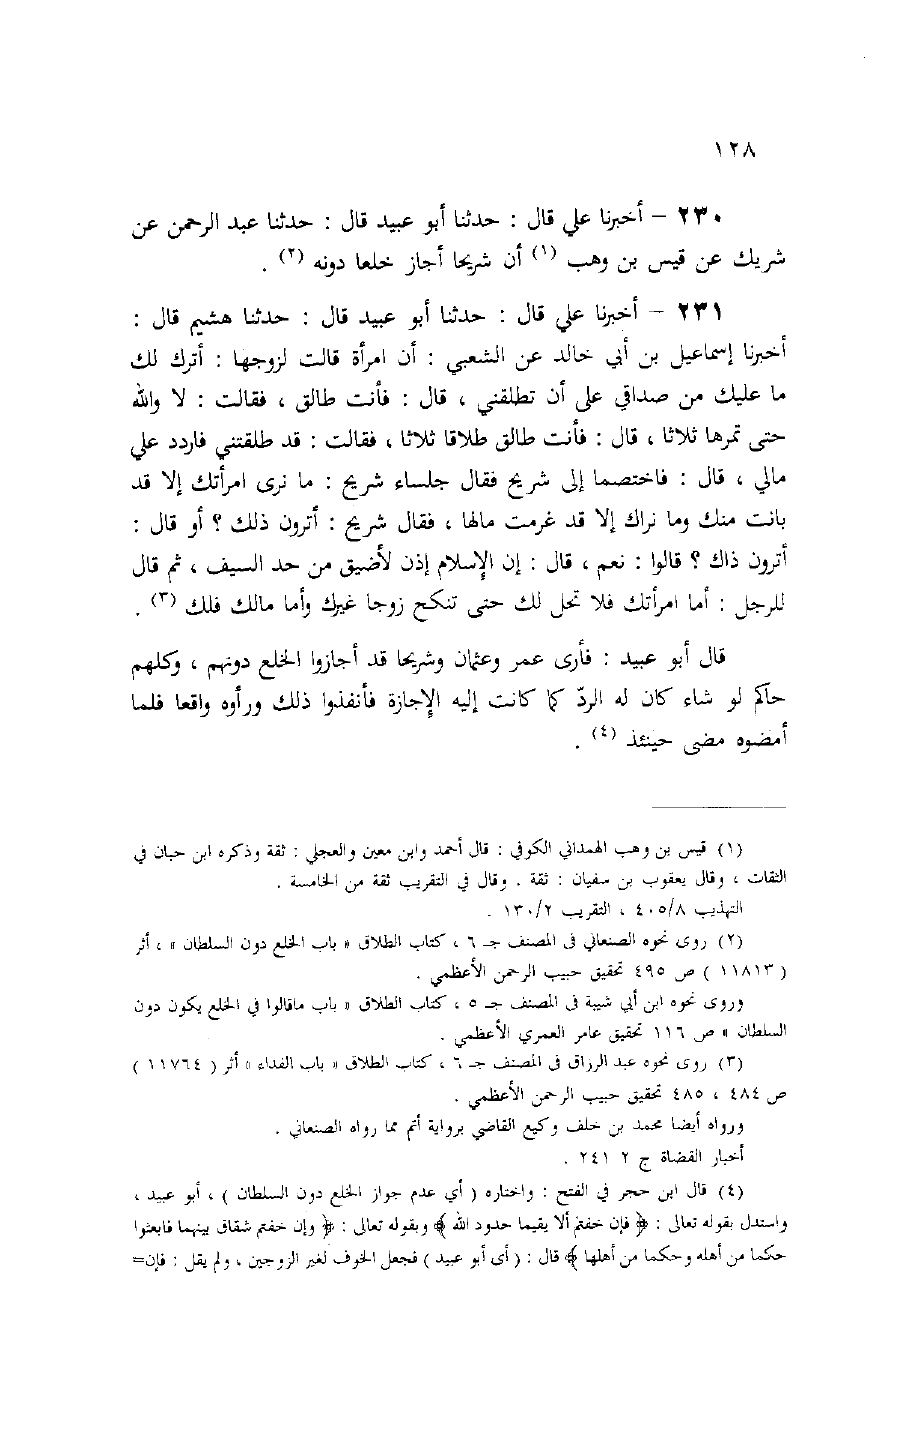 ١٢٨
٢٣٠ - أخبرنا علي قال : حدثنا أبو عبيد قال : حدثنا عبد الرحمن عن
شريك عن قيس بن وهب (١) أن شريحا أجاز خلعا دونه (٢) .
٢٣١ - أخبرنا علي قال : حدثنا أبو عبيد قال : حدثنا هشيم قال :
أخبرنا إسماعيل بن أبي خالد عن الشعبي : أن امرأة قالت لزوجها : أترك لك
ما عليك من صداقي على أن تطلقني ، قال : فأنت طالق ، فقالت : لا والله
حتى تمرها ثلاثا ، قال : فأنت طالق طلاقا ثلاثا ، فقالت : قد طلقتني فاردد علي
مالي ، قال : فاختصما إلى شريح فقال جلساء شريح : ما نرى امرأتك إلا قد
بانت منك وما نراك إلا قد غرمت مالها ، فقال شريح : أترون ذلك ؟ أو قال :
أترون ذاك ؟ قالوا : نعم ، قال : إن الإسلام إذن لأضيق من حد السيف ، ثم قال
للرجل : أما امرأتك فلا تحل لك حتى تنكح زوجا غيرك وأما مالك فلك (٣) .
قال أبو عبيد : فأرى عمر وعثمان وشريحا قد أجازوا الخلع دونهم ، وكلهم
حاكم لو شاء كان له الردّ كما كانت إليه الإجازة فأنفذوا ذلك ورأوه واقعا فلما
أمضوه مضى حينئذ (٤) .
(١) قيس بن وهب الهمداني الكوفي : قال أحمد وابن معين والعجلي : ثقة وذكره ابن حبان في
الثقات ، وقال يعقوب بن سفيان : ثقة . وقال في التقريب ثقة من الخامسة .
التهذيب ٤٠٥/٨ ، التقريب ١٣٠/٢ .
(٢) روى نحوه الصنعاني فى المصنف جـ ٦ ، كتاب الطلاق « باب الخلع دون السلطان » ، أثر
( ١١٨١٣ ) ص ٤٩٥ تحقيق حبيب الرحمن الأعظمي .
وروى نحوه ابن أبي شيبة فى المصنف جـ ٥ ، كتاب الطلاق « باب ماقالوا في الخلع يكون دون
السلطان » ص ١١٦ تحقيق عامر العمري الأعظمي .
(٣) روى نحوه عبد الرزاق فى المصنف جـ ٦ ، كتاب الطلاق « باب الفداء » أثر ( ١١٧٦٤ )
ص ٤٨٤ ، ٤٨٥ تحقيق حبيب الرحمن الأعظمي .
ورواه أيضا محمد بن خلف وكيع القاضي برواية أتم مما رواه الصنعاني .
أخبار القضاة ج ٢ ٢٤١ .
(٤) قال ابن حجر في الفتح : واختاره ( أي عدم جواز الخلع دون السلطان ) ، أبو عبيد ،
واستدل بقوله تعالى : ﴿ فإن خفتم ألا يقيما حدود الله ﴾ وبقوله تعالى : ﴿ وإن خفتم شقاق بينهما فابعثوا
حكما من أهله وحكما من أهلها ﴾ قال : ( أى أبو عبيد ) فجعل الخوف لغير الزوجين ، ولم يقل : فإن=